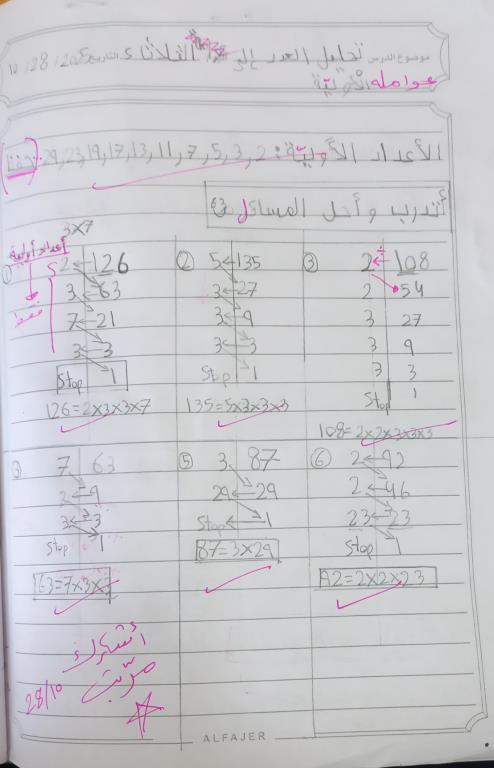 موضوع الدرس تحليل العدد إلى الثلاثاء التاريخ 28
عوامله الأولية
الأعداد الأولية: 2, 3, 5, 7, 11, 13, 17, 19, 23, 29
أتدرب وأحل المسائل
3×7
أعداد أولية
فقط
① 2 126
3 63
7 21
3 3
Stop 1
126=2×3×3×7
② 5 135
3 27
3 9
3 3
Stop 1
135=5×3×3×3
③ 2 ÷ 108
2 54
3 27
3 9
3 3
Stop 1
108=2×2×3×3×3
7 63
9
3 3
Stop 1
63=7×3×3
⑤ 3 87
29 29
Stop 1
87=3×29
⑥ 2 92
2 46
23 23
Stop 1
A2=2×2×23
أشكرك
مرتب
28/10
ALFAJER